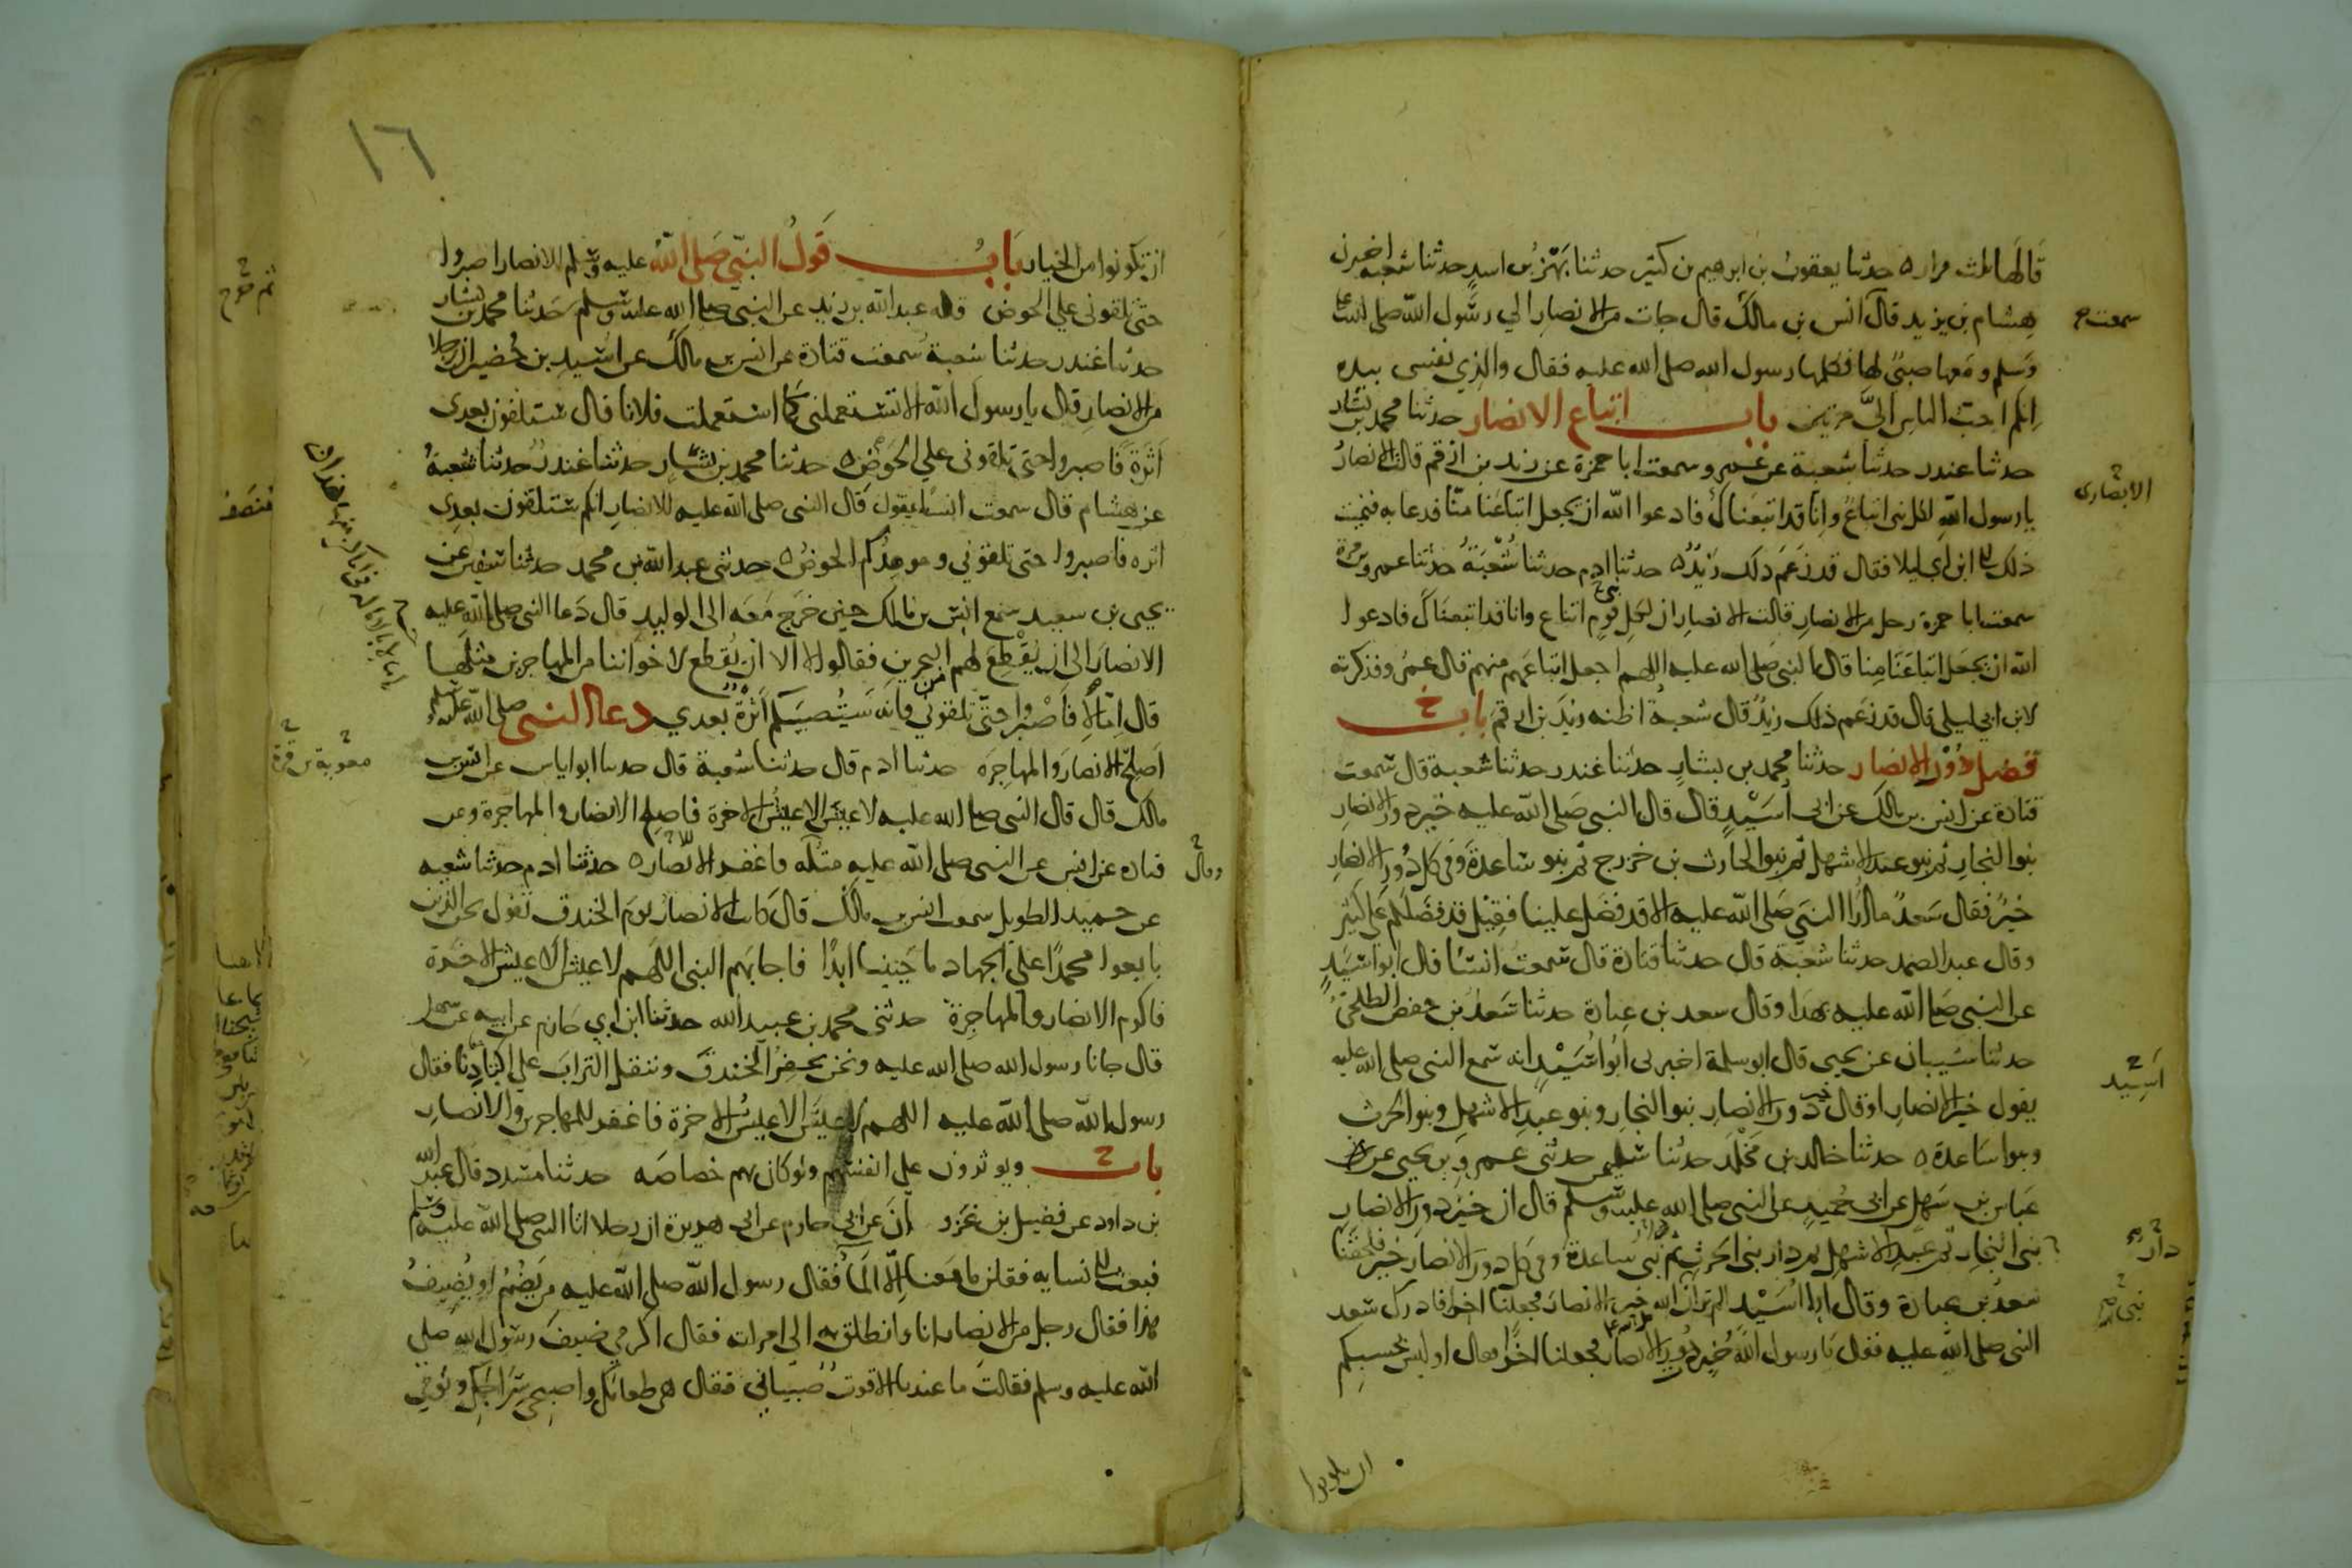 قالها ثلث مرار حدثنا يعقوب بن ابرهيم بن كثير حدثنا بهز بن اسد حدثنا شعبة اخبرني
هشام بن يزيد قال انس بن مالك قال جات من الانصار الي رسول الله صلى الله عليه
وسلم ومعها صبي لها فكلمها رسول الله صلى الله عليه فقال والذي نفسي بيده
انكم احب الناس الي مرتين باب اتباع الانصار حدثنا محمد بن بشار
حدثنا غندر حدثنا شعبة عن عمرو سمعت ابا حمزة عن زيد بن ارقم قالت الانصار
يا رسول الله لكل نبي اتباع وانا قد اتبعناك فادعوا الله ان يجعل اتباعنا منا فدعا به فنميت
ذلك الى ابن ابي ليلا فقال قد زعم ذلك زيد حدثنا ادم حدثنا شعبة حدثنا عمرو بن مرة
سمعت ابا حمزة رجل من الانصار قالت الانصار ان لكل قوم اتباع وانا قد اتبعناك فادعوا
الله ان يجعل اتباعنا منا قال النبي صلى الله عليه اللهم اجعل اتباعهم منهم قال عمرو فذكرته
لابن ابي ليلى قال قد زعم ذلك زيد قال شعبة اظنه زيد بن ارقم باب
فضل دور الانصار حدثنا محمد بن بشار حدثنا غندر حدثنا شعبة قال سمعت
قتادة عن انس بن مالك عن ابي اسيد قال قال النبي صلى الله عليه خير دور الانصار
بنوا النجار ثم بنو عبد الاشهل ثم بنوا الحارث بن خزرج ثم بنو ساعدة وفي كل دور الانصار
خير فقال سعد ما ارا النبي صلى الله عليه الا قد فضل علينا فقيل قد فضلكم على كثير
وقال عبد الصمد حدثنا شعبة قال حدثنا قتادة قال سمعت انسا قال ابو اسيد
عن النبي صلى الله عليه بهذا وقال سعد بن عبادة حدثنا سعد بن حفص الطلحي
حدثنا شيبان عن يحيى قال ابو سلمة اخبرني ابو اسيد انه سمع النبي صلى الله عليه
يقول خير الانصار او قال خير دور الانصار بنوا النجار وبنو عبد الاشهل وبنوا الحرث
وبنوا ساعدة حدثنا خالد بن مخلد حدثنا سليمن حدثني عمرو بن يحيى عن
عباس بن سهل عن ابي حميد عن النبي صلى الله عليه وسلم قال ان خير دور الانصار
بني النجار ثم عبد الاشهل ثم دار بني الحرث ثم بني ساعدة وفي كل دور الانصار خير فلحقنا
سعد بن عبادة وقال ابا اسيد الم تر ان الله خير الانصار فجعلنا اخرا فادرك سعد
النبي صلى الله عليه فقال يا رسول الله خير دور الانصار فجعلنا اخرا فقال اوليس بحسبكم
سمعت
الانصاري
اسيد
دار
بني
ان يكونوا
١٦
ان يكونوا من الخيار باب قول النبي صلى الله عليه وسلم للانصار اصبروا
حتى تلقوني علي الحوض قاله عبد الله بن زيد عن النبي صلى الله عليه وسلم حدثنا محمد بن بشار
حدثنا غندر حدثنا شعبة سمعت قتادة عن انس بن مالك عن اسيد بن حضير ان رجلا
من الانصار قال يا رسول الله الا تستعملني كما استعملت فلانا قال ستلقون بعدي
اثرة فاصبروا حتى تلقوني علي الحوض حدثنا محمد بن بشار حدثنا غندر حدثنا شعبة
عن هشام قال سمعت انسا يقول قال النبي صلى الله عليه للانصار انكم ستلقون بعدي
اثره فاصبروا حتى تلقوني وموعدكم الحوض حدثني عبد الله بن محمد حدثنا سفين عن
يحيى بن سعيد سمع انس بن مالك حين خرج معه الى الوليد قال دعا النبي صلى الله عليه
الانصار الى ان يقطع لهم البحرين فقالوا لا الا ان تقطع لاخواننا من المهاجرين مثلها
قال اما لا فاصبروا حتى تلقوني فانه ستصيبكم اثرة بعدي دعا النبي صلى الله عليه وسلم
اصلح الانصار والمهاجره حدثنا ادم قال حدثنا شعبة قال حدثنا ابو اياس عن انس بن
مالك قال قال النبي صلى الله عليه لا عيش الا عيش الاخرة فاصلح الانصار والمهاجرة وعن
قتاده عن انس عن النبي صلى الله عليه مثله فاغفر للانصار حدثنا ادم حدثنا شعبه
عن حميد الطويل سمعت انس بن مالك قال كانت الانصار يوم الخندق تقول نحن الذين
بايعوا محمدا على الجهاد ما حيينا ابدا فاجابهم النبي اللهم لا عيش الا عيش الاخرة
فاكرم الانصار والمهاجرة حدثني محمد بن عبيد الله حدثنا ابن ابي حازم عن ابيه عن سهل
قال جانا رسول الله صلى الله عليه ونحن نحفر الخندق وننقل التراب علي اكتادنا فقال
رسول الله صلى الله عليه اللهم لا عيش الا عيش الاخرة فاغفر للمهاجرين والانصار
باب ويوثرون على انفسهم ولو كان بهم خصاصه حدثنا مسدد قال عبد الله
بن داود عن فضيل بن غزوان عن ابي حازم عن ابي هريرة ان رجلا اتا النبي صلى الله عليه وسلم
فبعث الى نسايه فقلن ما معنا الا الما فقال رسول الله صلى الله عليه من يضم او يضيف
هذا فقال رجل من الانصار انا وانطلق به الى امراته فقال اكرمي ضيف رسول الله صلى
الله عليه وسلم فقالت ما عندنا الا قوت صبياني فقال هي طعامك واصبحي سراجك ونومي
معوية بن قرة
وقال